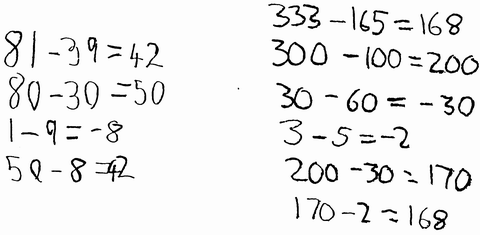 81 - 39 = 42
80 - 30 = 50
1 - 9 = -8
50 - 8 = 42
333 - 165 = 168
300 - 100 = 200
30 - 60 = -30
3 - 5 = -2
200 - 30 = 170
170 - 2 = 168